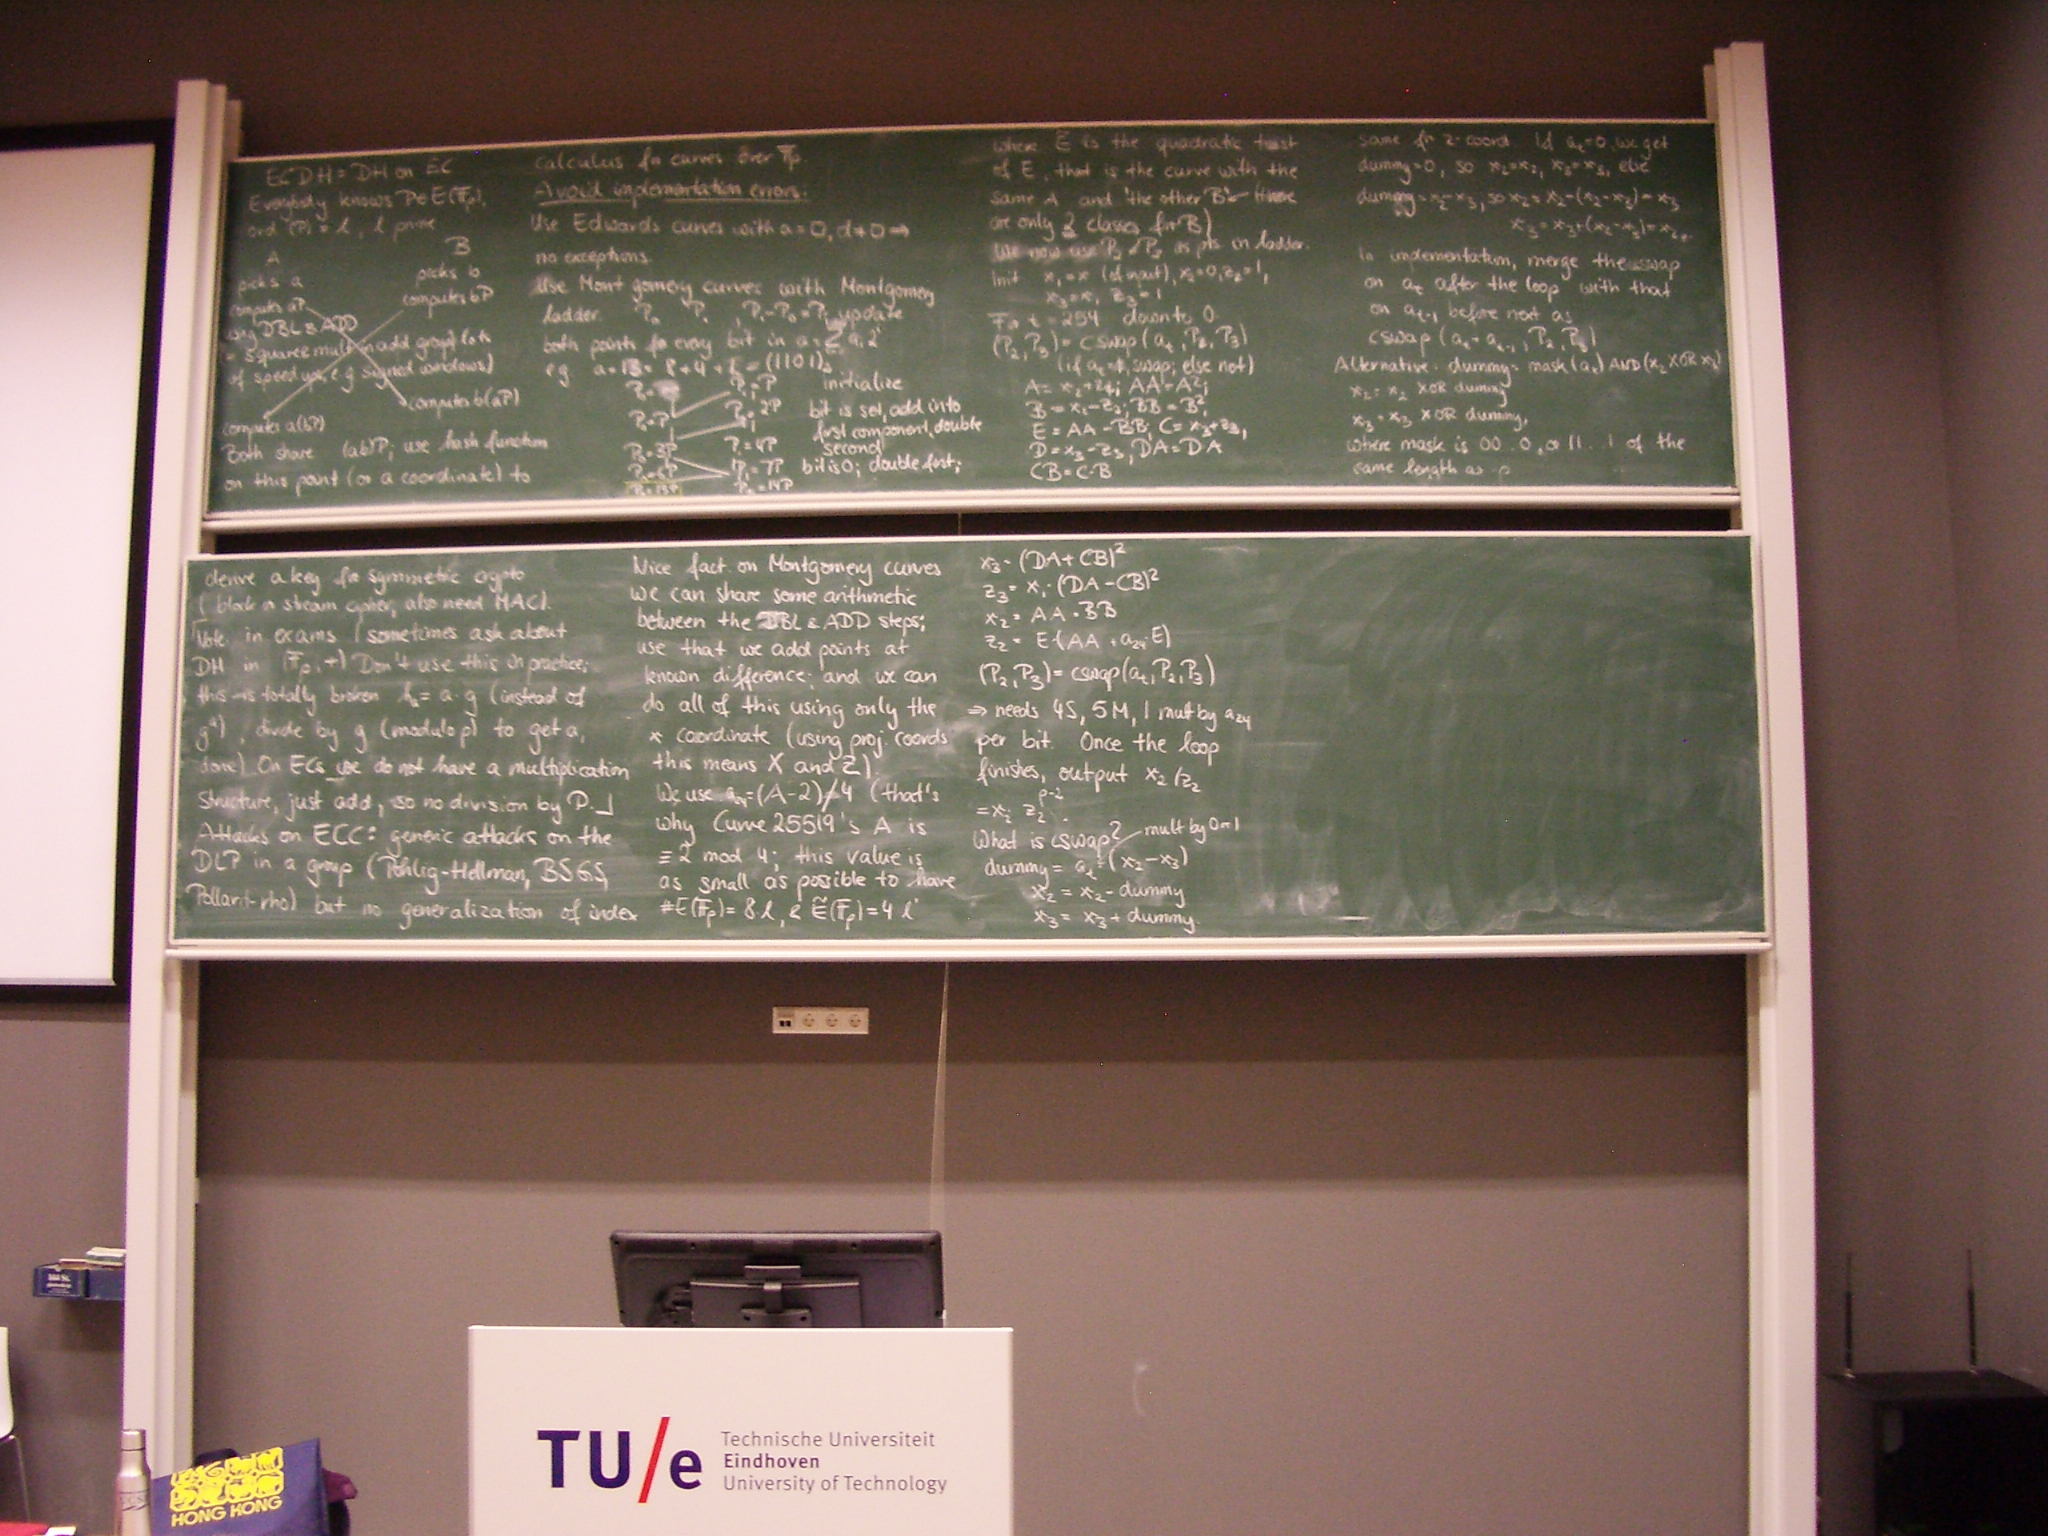 ECDH = DH on EC
Everybody knows P∈E(F_p),
ord(P) = l, l prime
A
B
picks a
picks b
computes aP
computes bP
using DBL & ADD
of speedups, e.g. signed windows)
computes b(aP)
computes a(bP)
Both share (ab)P; use hash function
on this point (or a coordinate) to
derive a key for symmetric crypto
(block or stream cipher, also need MAC).
Note: in exams I sometimes ask about
DH in (F_p,+) Don't use this in practice;
this is totally broken h_a = a·g (instead of
g^a), divide by g (modulo p) to get a,
done) On ECs we do not have a multiplication
structure, just add, so no division by P.
Attacks on ECC: generic attacks on the
DLP in a group (Pohlig-Hellman, BSGS,
Pollard-rho) but no generalization of index
calculus for curves over F_p.
Avoid implementation errors:
Use Edwards curves with a=□, d≠□ ⇒
no exceptions.
Use Montgomery curves with Montgomery
ladder. P_0 P_1, P_1-P_0=P, update
both points for every bit in a=Σ a_i 2^i
eg a=13 = 8+4+1 = (1101)_2
P_1=P initialize
P_0=P P_1=2P bit is set, add into
first component, double
P_0=3P P_1=4P second
P_0=6P P_1=7P bit is 0; double first;
P_0=13P P_1=14P
Nice fact on Montgomery curves
we can share some arithmetic
between the DBL & ADD steps;
use that we add points at
known difference; and we can
do all of this using only the
x coordinate (using proj. coords
this means X and Z).
We use a_24=(A-2)/4 (that's
why Curve25519's A is
≡ 2 mod 4; this value is
as small as possible to have
#E(F_p)= 8·l, & Ẽ(F_p)=4 l'
where Ẽ is the quadratic twist
of E, that is the curve with the
same A and 'the other B' (there
are only 2 classes for B)
We now use P_2 & P_3 as pts in ladder.
Init x_1=x (of input), x_2=0, z_2=1,
x_3=x, z_3=1
For t=254 down to 0
(P_2,P_3) = cswap(a_t, P_2, P_3)
swap; else not)
A = x_2+z_2; AA=A²;
B = x_2-z_2; BB=B²;
E = AA-BB; C=x_3+z_3,
D = x_3-z_3, DA=D·A
CB=C·B
x_3 = (DA+CB)²
z_3 = x_1·(DA-CB)²
x_2 = AA·BB
z_2 = E·(AA + a_24·E)
(P_2,P_3)= cswap(a_t,P_2,P_3)
⇒ needs 4S, 5M, 1 mult by a_24
per bit. Once the loop
finishes, output x_2/z_2
=x_2 z_2^{p-2}.
What is cswap? mult by 0 or 1
dummy = a_t·(x_2-x_3)
x_2 = x_2-dummy
x_3 = x_3+dummy.
same for z-coord. If a_t=0, we get
dummy=0, so x_2=x_2, x_3=x_3, else
dummy=x_2-x_3, so x_2=x_2-(x_2-x_3)=x_3
x_3=x_3+(x_2-x_3)=x_2.
In implementation, merge the cswap
on a_t after the loop with that
on a_t-1 before next as
cswap(a_t-a_t-1, P_2, P_3)
Alternative. dummy= mask(a_t) AND (x_2 XOR x_3)
x_2=x_2 XOR dummy
x_3=x_3 XOR dummy,
where mask is 00...0, or 11...1 of the
same length as p
TU/e
Technische Universiteit
Eindhoven
University of Technology
HONG KONG